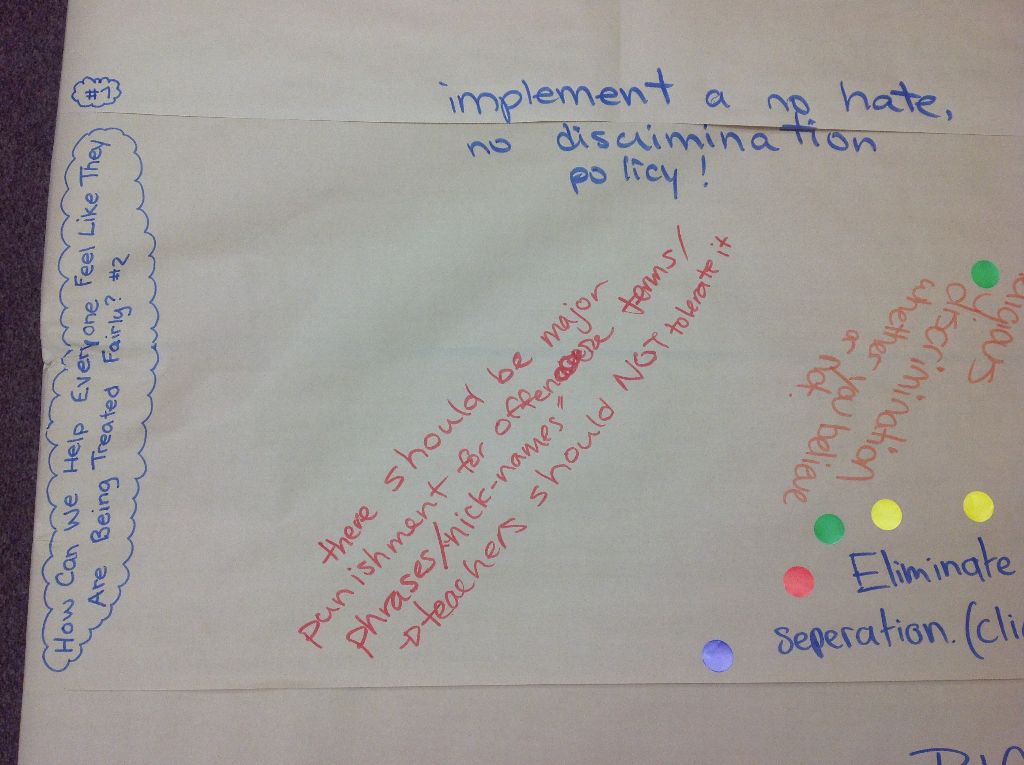 #3
How Can We Help Everyone Feel Like They
Are Being Treated Fairly? #2
implement a no hate,
no discrimination
policy!
there should be major
punishment for offen terms/
phrases/nick-names"
→teachers should NOT tolerate it
discrimination
whether you believe
or not.
Eliminate
seperation. (cli